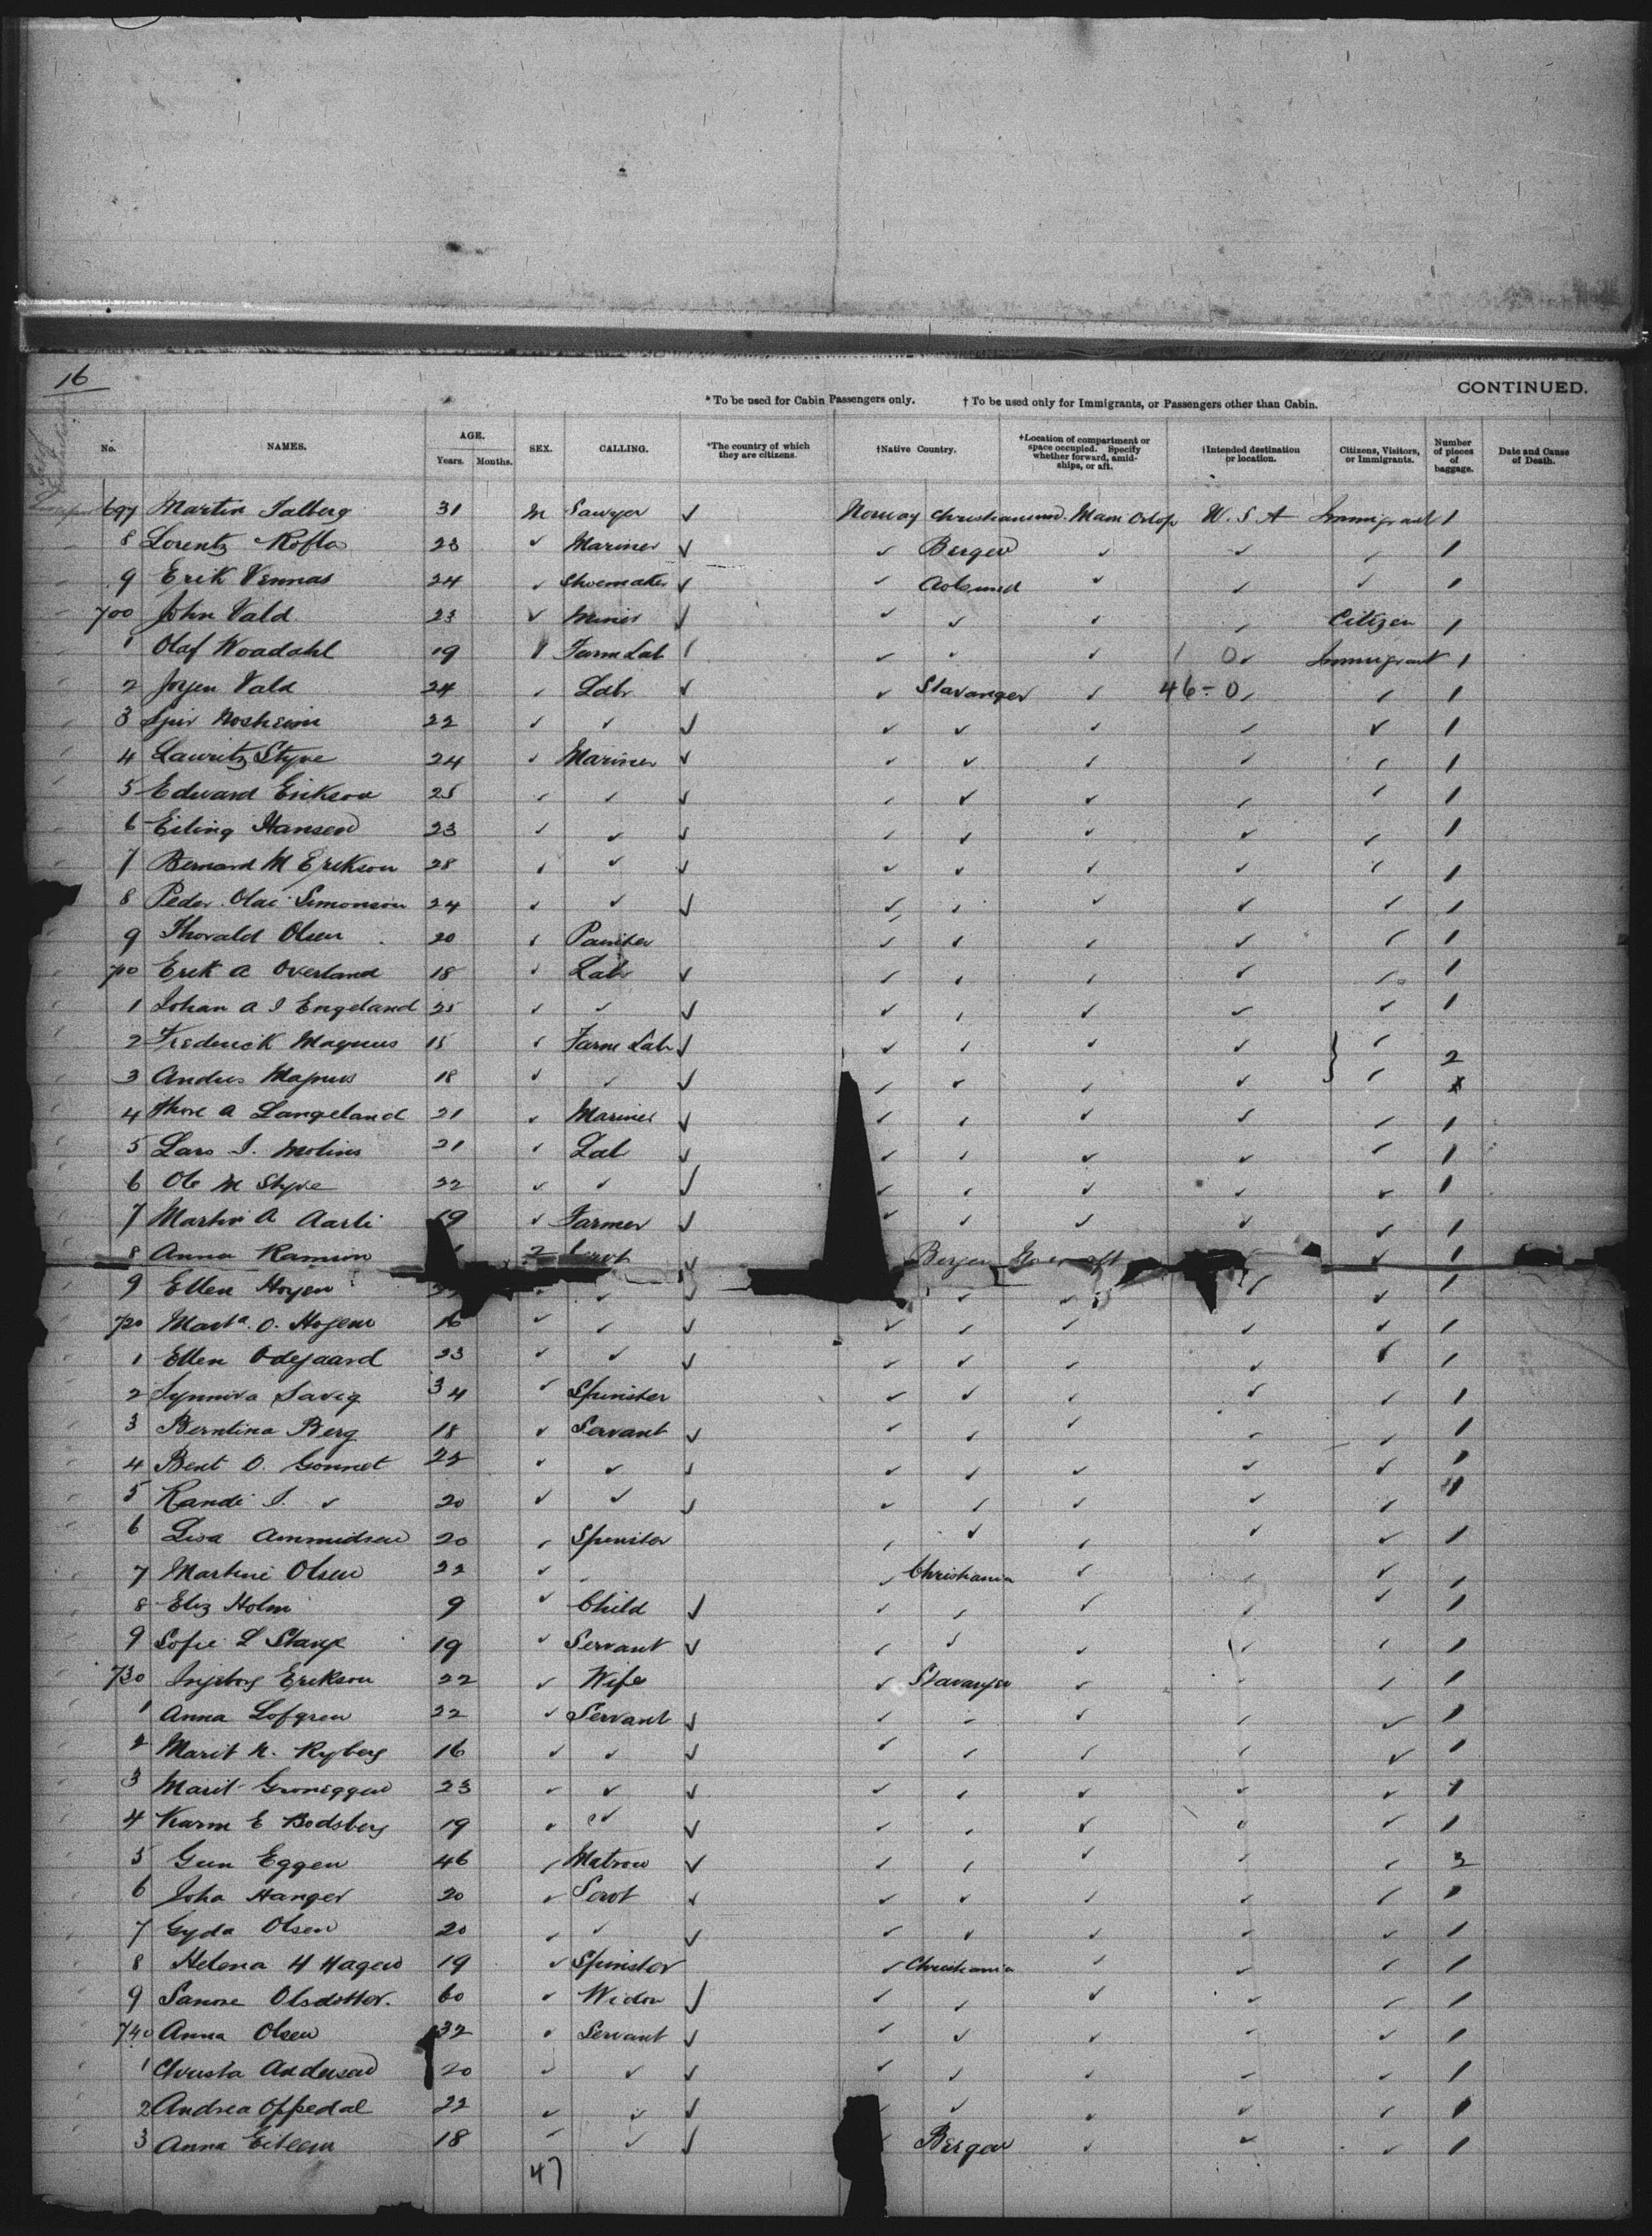 16
CONTINUED.
* To be used for Cabin Passengers only. † To be used only for Immigrants, or Passengers other than Cabin.
No. NAMES. AGE. Years. Months. SEX. CALLING. *The country of which they are citizens. †Native Country. †Location of compartment or space occupied. Specify whether forward, amidships, or aft. †Intended destination or location. Citizens, Visitors, or Immigrants. Number of pieces of baggage. Date and Cause of Death.
697 Martin Talberg 31 M Sawyer ✓ Norway Main Orlop U.S.A Immigrant 1
8 Lorentz Kofta 23 ✓ Mariner ✓ ✓ Bergen ✓ ✓ ✓ 1
9 Erik Vennas 24 ✓ Shoemaker ✓ ✓ ✓ ✓ ✓ 1
700 John Vald 23 ✓ Miner ✓ ✓ ✓ ✓ ✓ Citizen 1
1 Olaf Woadahl 19 ✓ Farm Lab ✓ ✓ ✓ ✓ 1 0 ✓ Immigrant 1
2 Vald 24 ✓ Labr ✓ ✓ Stavanger ✓ 46-0 ✓ ✓ 1
3 22 ✓ ✓ ✓ ✓ ✓ ✓ ✓ ✓ 1
4 Lauritz Styve 24 ✓ Mariner ✓ ✓ ✓ ✓ ✓ ✓ 1
5 Edward Erikson 25 ✓ ✓ ✓ ✓ ✓ ✓ ✓ ✓ 1
6 Eiling Hansen 23 ✓ ✓ ✓ ✓ ✓ ✓ ✓ ✓ 1
7 Bernard M Erikson 28 ✓ ✓ ✓ ✓ ✓ ✓ ✓ ✓ 1
8 Peder Olai Simonson 24 ✓ ✓ ✓ ✓ ✓ ✓ ✓ ✓ 1
9 Thorald Olsen 20 ✓ Painter ✓ ✓ ✓ ✓ ✓ 1
710 Erik A Overland 18 ✓ Labr ✓ ✓ ✓ ✓ ✓ ✓ 1
1 Johan A I Engeland 25 ✓ ✓ ✓ ✓ ✓ ✓ ✓ ✓ 1
2 Frederick Magnus 15 ✓ Farm Lab ✓ ✓ ✓ ✓ ✓ ✓ 2
3 Andres Magnus 18 ✓ ✓ ✓ ✓ ✓ ✓ ✓ ✓
4 Thore A Langeland 21 ✓ Mariner ✓ ✓ ✓ ✓ ✓ ✓ 1
5 Lars I. Molins 21 ✓ Lab ✓ ✓ ✓ ✓ ✓ ✓ 1
6 Ole M Styve 22 ✓ ✓ ✓ ✓ ✓ ✓ ✓ ✓ 1
7 Martin A Aarli 19 ✓ Farmer ✓ ✓ ✓ ✓ ✓ 1
8 Anna Ramion ✓ Bergen aft ✓ 1
9 Ellen Hoyen ✓ ✓ ✓ ✓ ✓ ✓ ✓ 1
720 Marta O. Hogene 16 ✓ ✓ ✓ ✓ ✓ ✓ ✓ ✓ 1
1 Ellen Odegaard 23 ✓ ✓ ✓ ✓ ✓ ✓ ✓ ✓ 1
2 Synniva Saveg 34 ✓ Spinster ✓ ✓ ✓ ✓ ✓ 1
3 Berntina Berg 18 ✓ Servant ✓ ✓ ✓ ✓ ✓ ✓ 1
4 Bent O. Gonnet 22 ✓ ✓ ✓ ✓ ✓ ✓ ✓ ✓ 1
5 Randi I. ✓ 20 ✓ ✓ ✓ ✓ ✓ ✓ ✓ ✓ 1
6 Lisa Ammidsen 20 ✓ Spinster ✓ ✓ ✓ ✓ ✓ 1
7 Martine Olsen 22 ✓ ✓ ✓ Christiania ✓ ✓ ✓ 1
8 Eliz Holm 9 ✓ Child ✓ ✓ ✓ ✓ ✓ ✓ 1
9 Sofie L Stange 19 ✓ Servant ✓ ✓ ✓ ✓ ✓ ✓ 1
730 Ingeborg Erikson 22 ✓ Wife ✓ Stavanger ✓ ✓ ✓ 1
1 Anna Lofgren 22 ✓ Servant ✓ ✓ ✓ ✓ ✓ ✓ 1
2 Marit N. Ryberg 16 ✓ ✓ ✓ ✓ ✓ ✓ ✓ ✓ 1
3 Marit Groneggen 23 ✓ ✓ ✓ ✓ ✓ ✓ ✓ ✓ 1
4 Karin E Bodsberg 19 ✓ ✓ ✓ ✓ ✓ ✓ ✓ ✓ 1
5 Gun Eggen 46 ✓ Matron ✓ ✓ ✓ ✓ ✓ ✓ 2
6 Joha Hanger 20 ✓ Servt ✓ ✓ ✓ ✓ ✓ ✓ 1
7 Gyda Olsen 20 ✓ ✓ ✓ ✓ ✓ ✓ ✓ ✓ 1
8 Helena H Hagen 19 ✓ Spinster ✓ Christiania ✓ ✓ ✓ 1
9 Olsdotter. 60 ✓ Widow ✓ ✓ ✓ ✓ ✓ ✓ 1
740 Anna Olsen 32 ✓ Servant ✓ ✓ ✓ ✓ ✓ ✓ 1
1 Christa Andersen 20 ✓ ✓ ✓ ✓ ✓ ✓ ✓ ✓ 1
2 Andrea Oppedal 22 ✓ ✓ ✓ ✓ ✓ ✓ ✓ ✓ 1
3 Anna Eitlem 18 ✓ ✓ ✓ Bergen ✓ ✓ ✓ 1
47